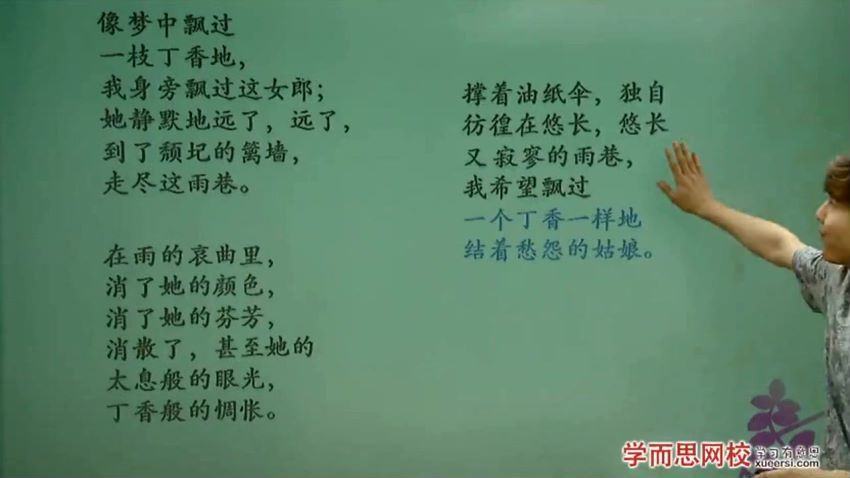 像梦中飘过
一枝丁香地，
我身旁飘过这女郎；
她静默地远了，远了，
到了颓圮的篱墙，
走尽这雨巷。
在雨的哀曲里，
消了她的颜色，
消了她的芬芳，
消散了，甚至她的
太息般的眼光，
丁香般的惆怅。
撑着油纸伞，独自
彷徨在悠长，悠长
又寂寥的雨巷，
我希望飘过
一个丁香一样地
结着愁怨的姑娘。
学而思网校
学习有意思
xueersi.com